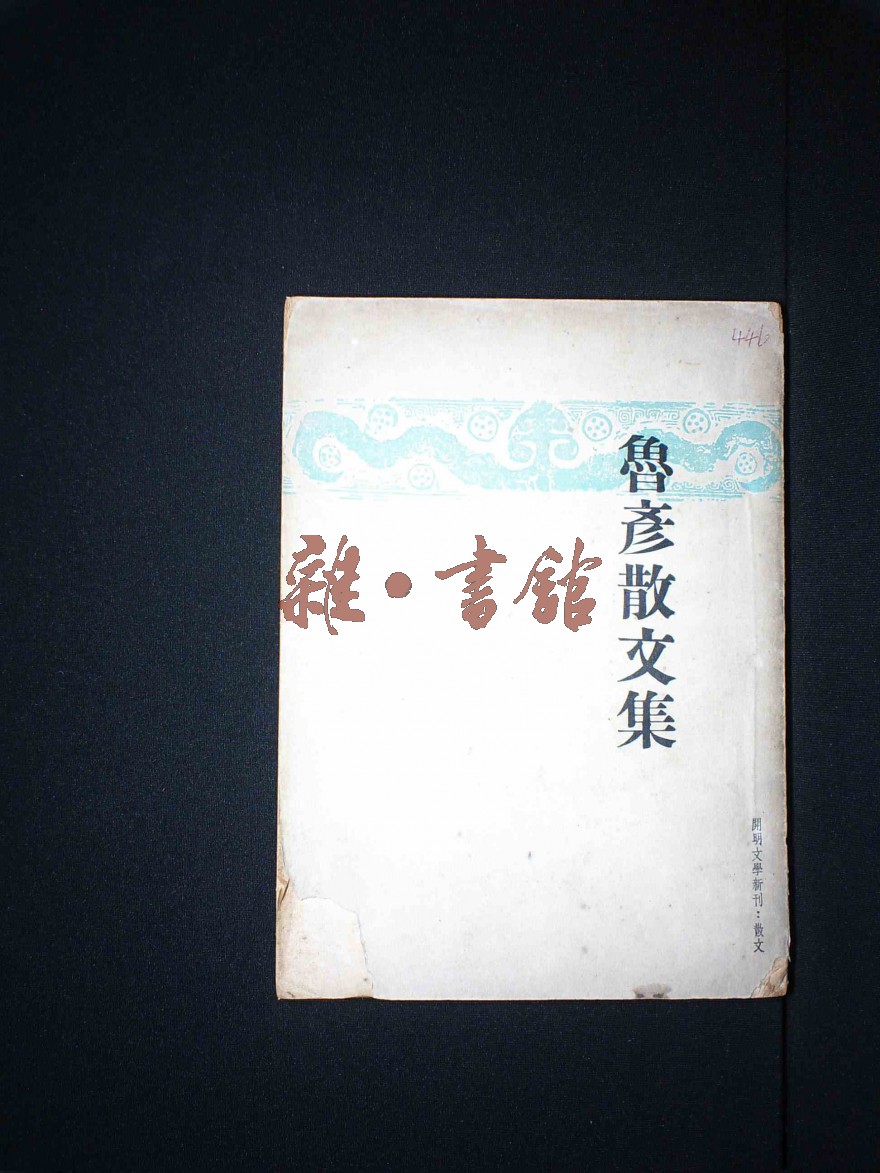 446
魯彥散文集
雜•書館
開明文學新刊：散文